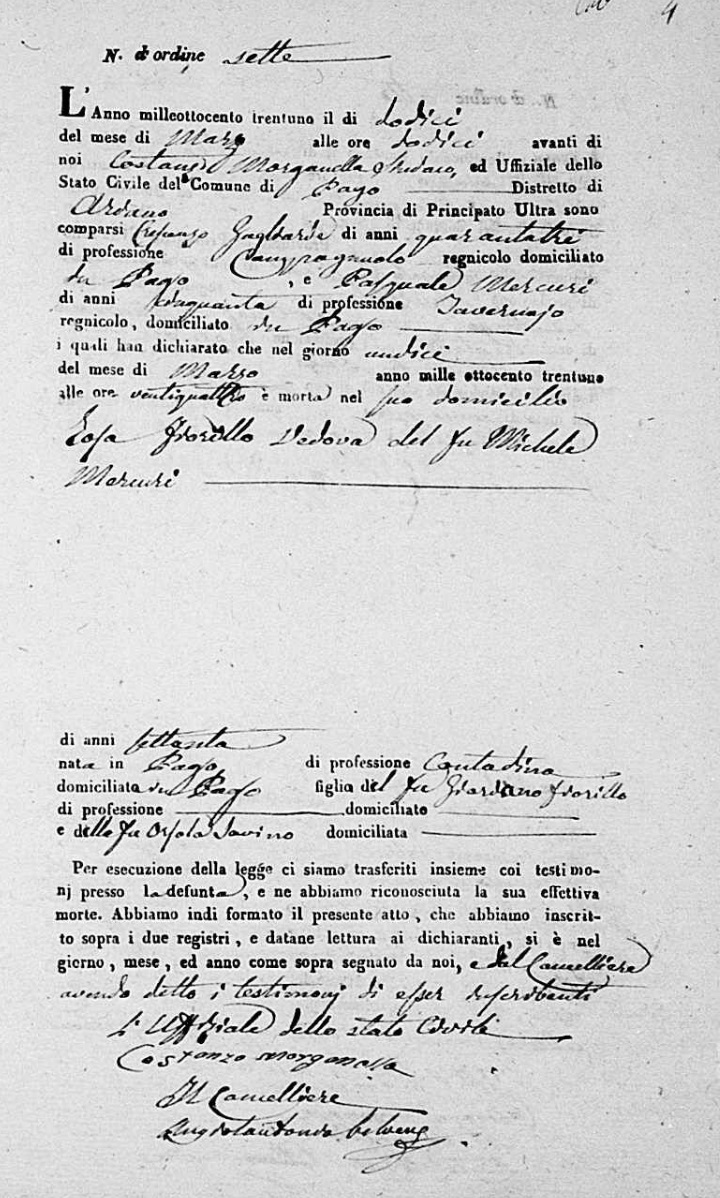 4
N. d'ordine sette
L'Anno milleottocento trentuno il di dodici
del mese di Marzo alle ore dodici avanti di
noi Costanzo Morganella Sindaco, ed Uffiziale dello
Stato Civile del Comune di Pago Distretto di
Ariano Provincia di Principato Ultra sono
comparsi Crescenzo Gagliarde di anni quarantatre
di professione Campagnuolo regnicolo domiciliato
in Pago, e Pasquale Mercuri
di anni cinquanta di professione Tavernajo
regnicolo, domiciliato in Pago
i quali han dichiarato che nel giorno undici
del mese di Marzo anno mille ottocento trentuno
alle ore ventiquattro è morta nel suo domicilio
Rosa Fiorillo Vedova del fu Michele
Mercuri
di anni settanta
nata in Pago di professione Contadina
domiciliata in Pago figlia del fu Giordano Fiorillo
di professione domiciliato
e della fu Orsola Savino domiciliata
Per esecuzione della legge ci siamo trasferiti insieme coi testimo-
nj presso la defunta, e ne abbiamo riconosciuta la sua effettiva
morte. Abbiamo indi formato il presente atto, che abbiamo inscrit-
to sopra i due registri, e datane lettura ai dichiaranti, si è nel
giorno, mese, ed anno come sopra segnato da noi, e dal Cancelliere
avendo detto i testimonj di esser inscribenti
L'Uffiziale dello stato Civile
Costanzo Morganella
Il Cancelliere